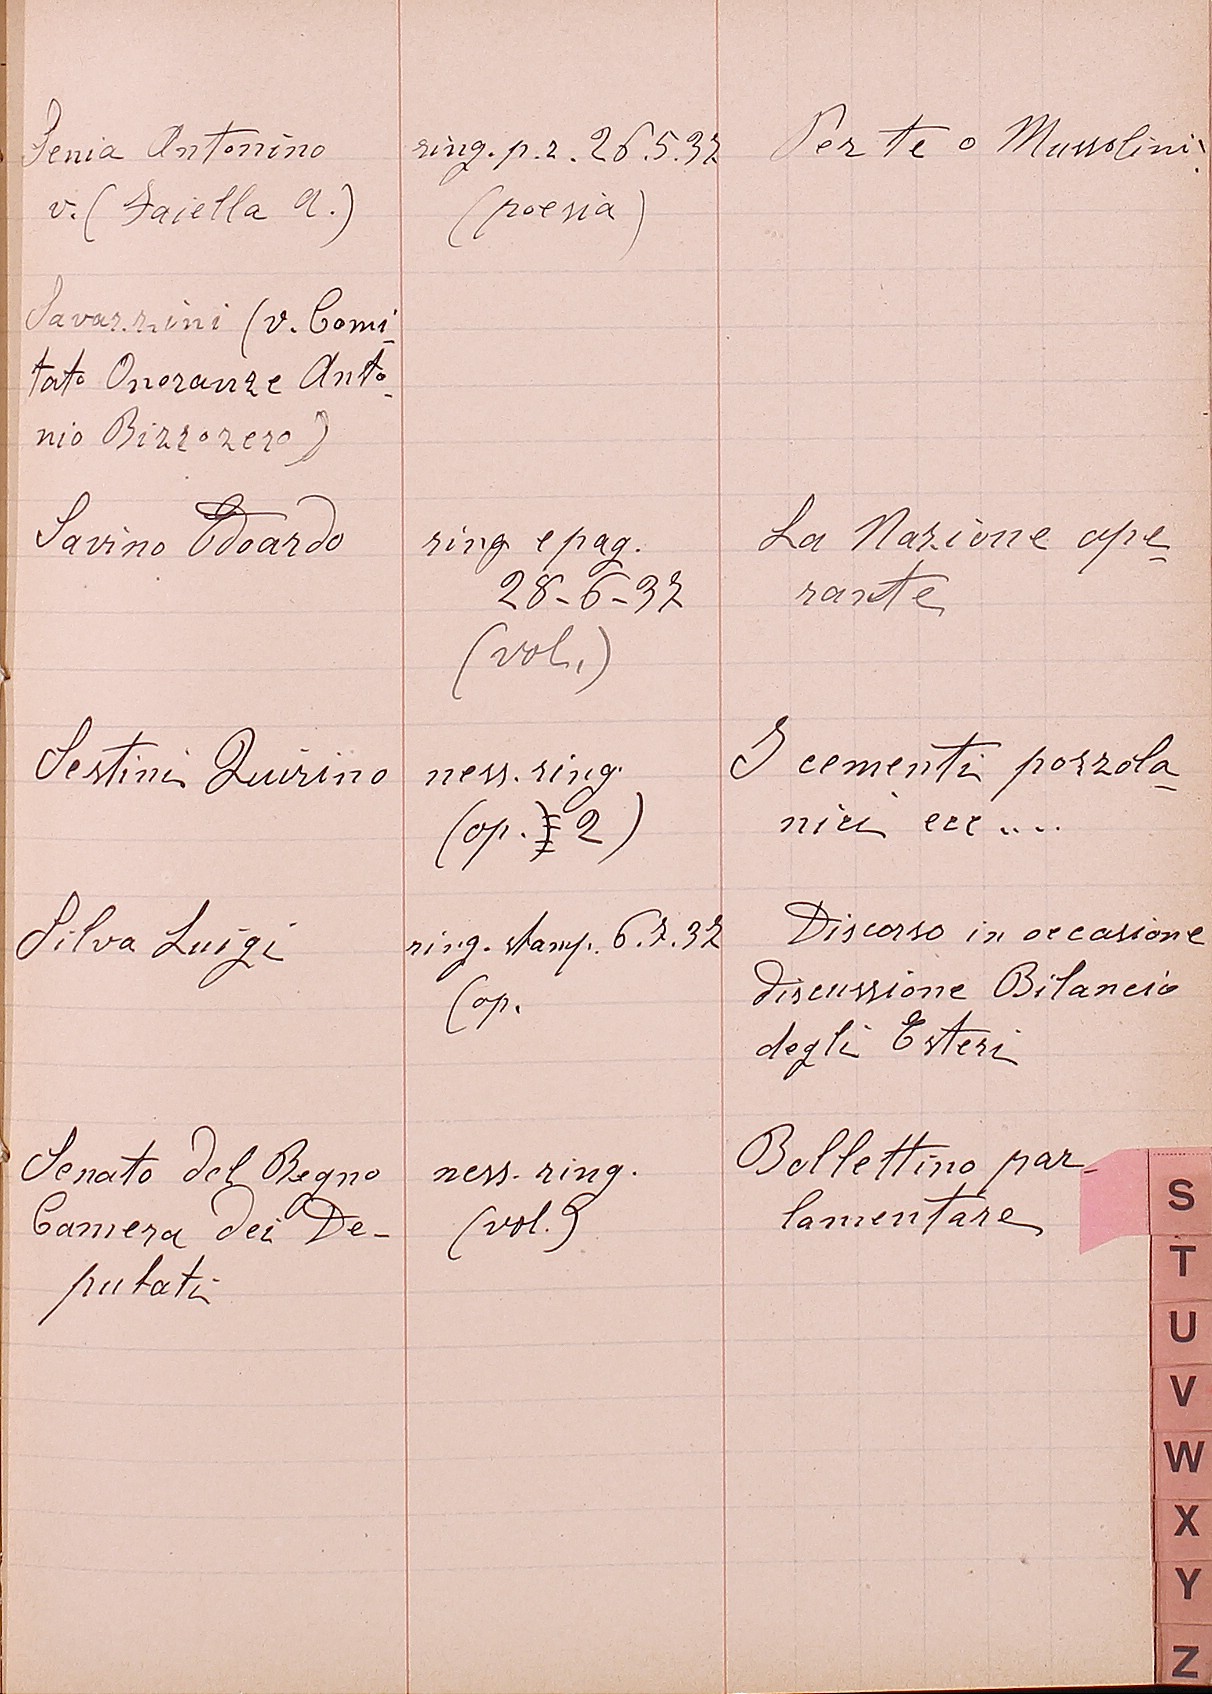 Senia Antonino
v. (Faiella A.)
ring. p.r. 26.5.37
(poesia)
Per te o Mussolini
Savazzini (v. Comi-
tato Onoranze Anto-
nio Bizzozero)
Savino Edoardo
ring e pag.
28-6-37
(vol.)
La Nazione ope-
rante
Sestini Quirino
ness. ring.
(op. 2)
I cementi pozzola-
nici ecc....
Silva Luigi
ring. stamp. 6.7.37
(op.
Discorso in occasione
discussione Bilancio
degli Esteri
Senato del Regno
Camera dei De-
putati
ness. ring.
(vol.)
Bollettino par-
lamentare
S
T
U
V
W
X
Y
Z